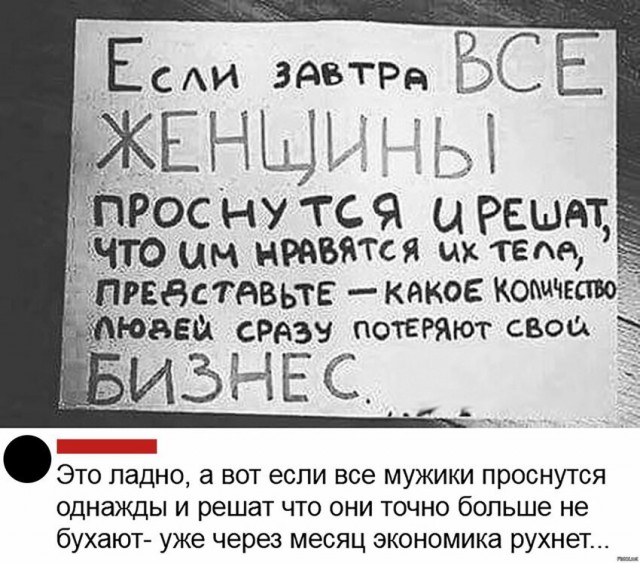 Если завтра ВСЕ
ЖЕНЩИНЫ
ПРОСНУТСЯ И РЕШАТ,
ЧТО ИМ НРАВЯТСЯ ИХ ТЕЛА,
ПРЕДСТАВЬТЕ — КАКОЕ КОЛИЧЕСТВО
ЛЮДЕЙ СРАЗУ ПОТЕРЯЮТ СВОЙ
БИЗНЕС.
Это ладно, а вот если все мужики проснутся
однажды и решат что они точно больше не
бухают- уже через месяц экономика рухнет...